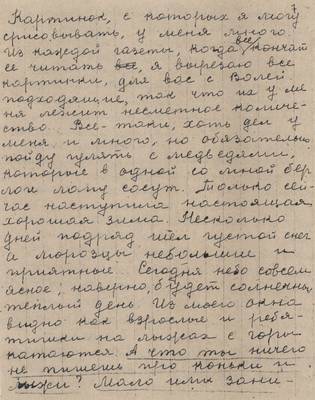 Картинок, с которых я могу
срисовывать, у меня много.
Из каждой газеты, когда все кончат
ее читать все, я вырезаю все
картинки, для вас с Волей
подходящие, так что их у ме
ня лежит несметное количе-
ство. Все-таки, хоть дел у
меня и много, но обязательно
пойду гулять с медведями,
которые в одной со мной бер
логе лапу сосут. Только сей-
час наступила настоящая
хорошая зима. Несколько
дней подряд шёл густой снег
и морозцы небольшие и
приятные. Сегодня небо совсем
ясное, наверно, будет солнечный
теплый день. Из моего окна
видно как взрослые и ребя-
тишки на лыжах с горы
катаются. А что ты ничего
не пишешь про коньки и
лыжи? Мало ими зани-